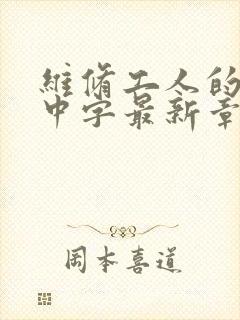 維修工人的
中字最新章
岡本喜道